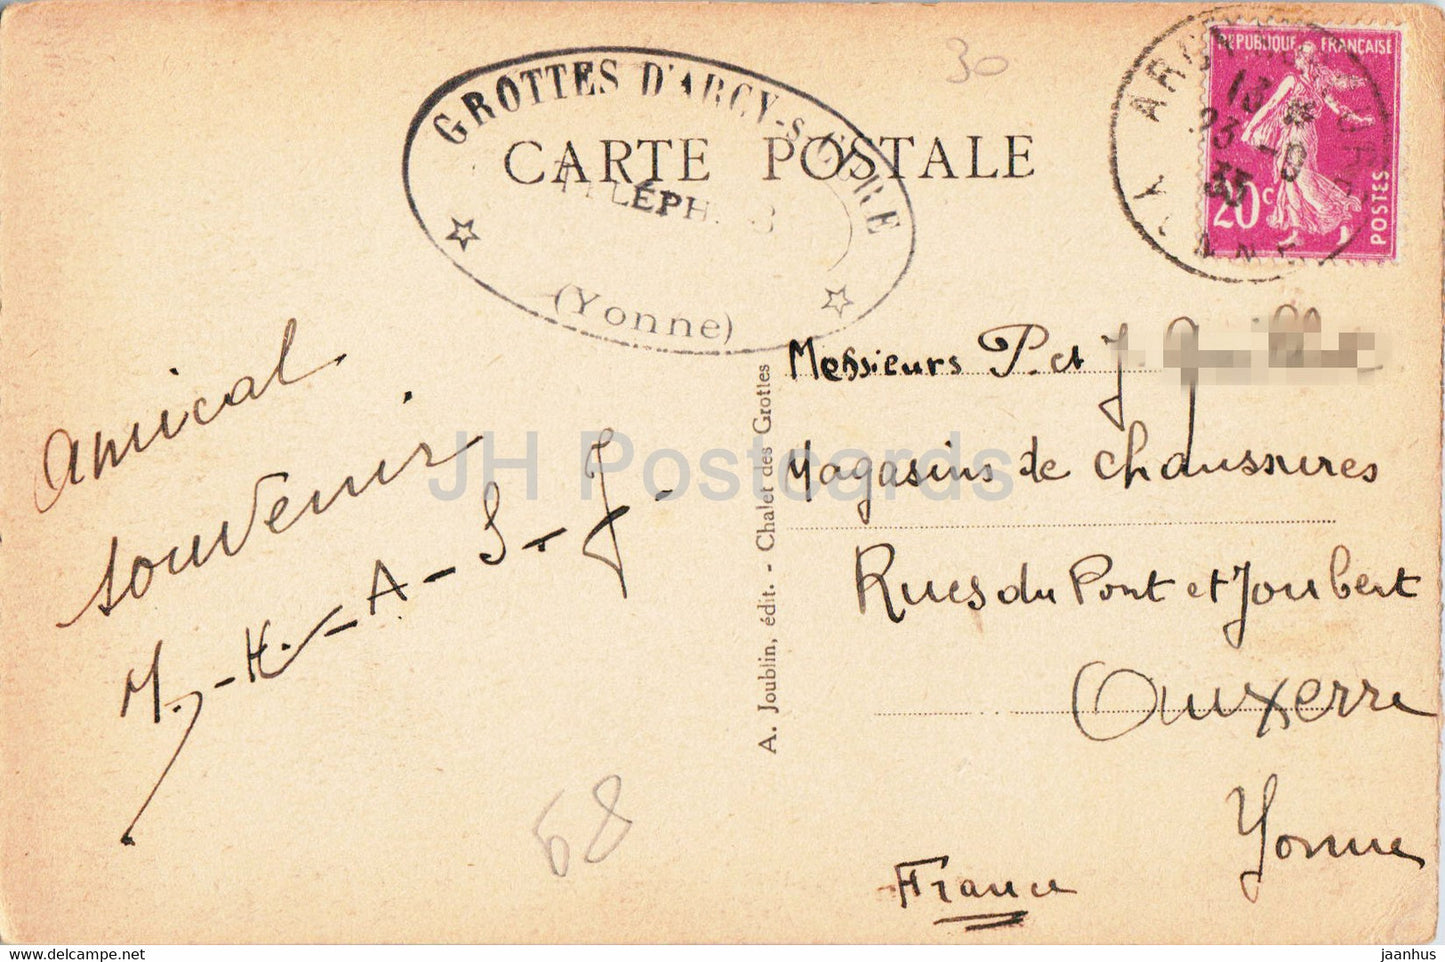 GROTTES D'ARCY-s-CURE
TÉLÉPH. 3
(Yonne)
CARTE POSTALE
30
RÉPUBLIQUE FRANÇAISE
20c
POSTES
ARCY
13
23 -9
35
YONNE
Amical
souvenir
M.-H.-A-S-J-
68
A. Joublin, édit. - Chalet des Grottes
Messieurs P. et J.
Magasins de chaussures
Rues du Pont et Joubert
Auxerre
Yonne
France
JH Postcards
jaanhus